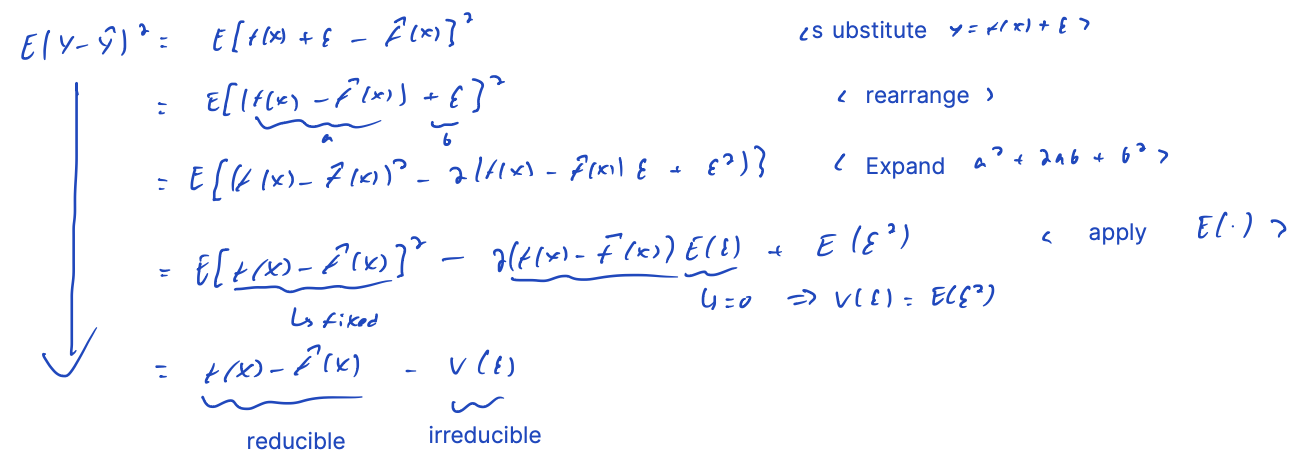 E(Y-ŷ)² = E[f(x) + ε - f̂(x)]² <substitute y = f(x) + ε>
= E[(f(x) - f̂(x)) + ε]² < rearrange >
a b
= E[(f(x) - f̂(x))² - 2(f(x) - f̂(x)) ε + ε²)] < Expand a² + 2ab + b² >
= E[f(x) - f̂(x)]² - 2(f(x) - f̂(x)) E(ε) + E(ε²) < apply E(·) >
↳ fixed ↳ = 0 => V(ε) = E(ε²)
= f(x) - f̂(x) - V(ε)
reducible irreducible